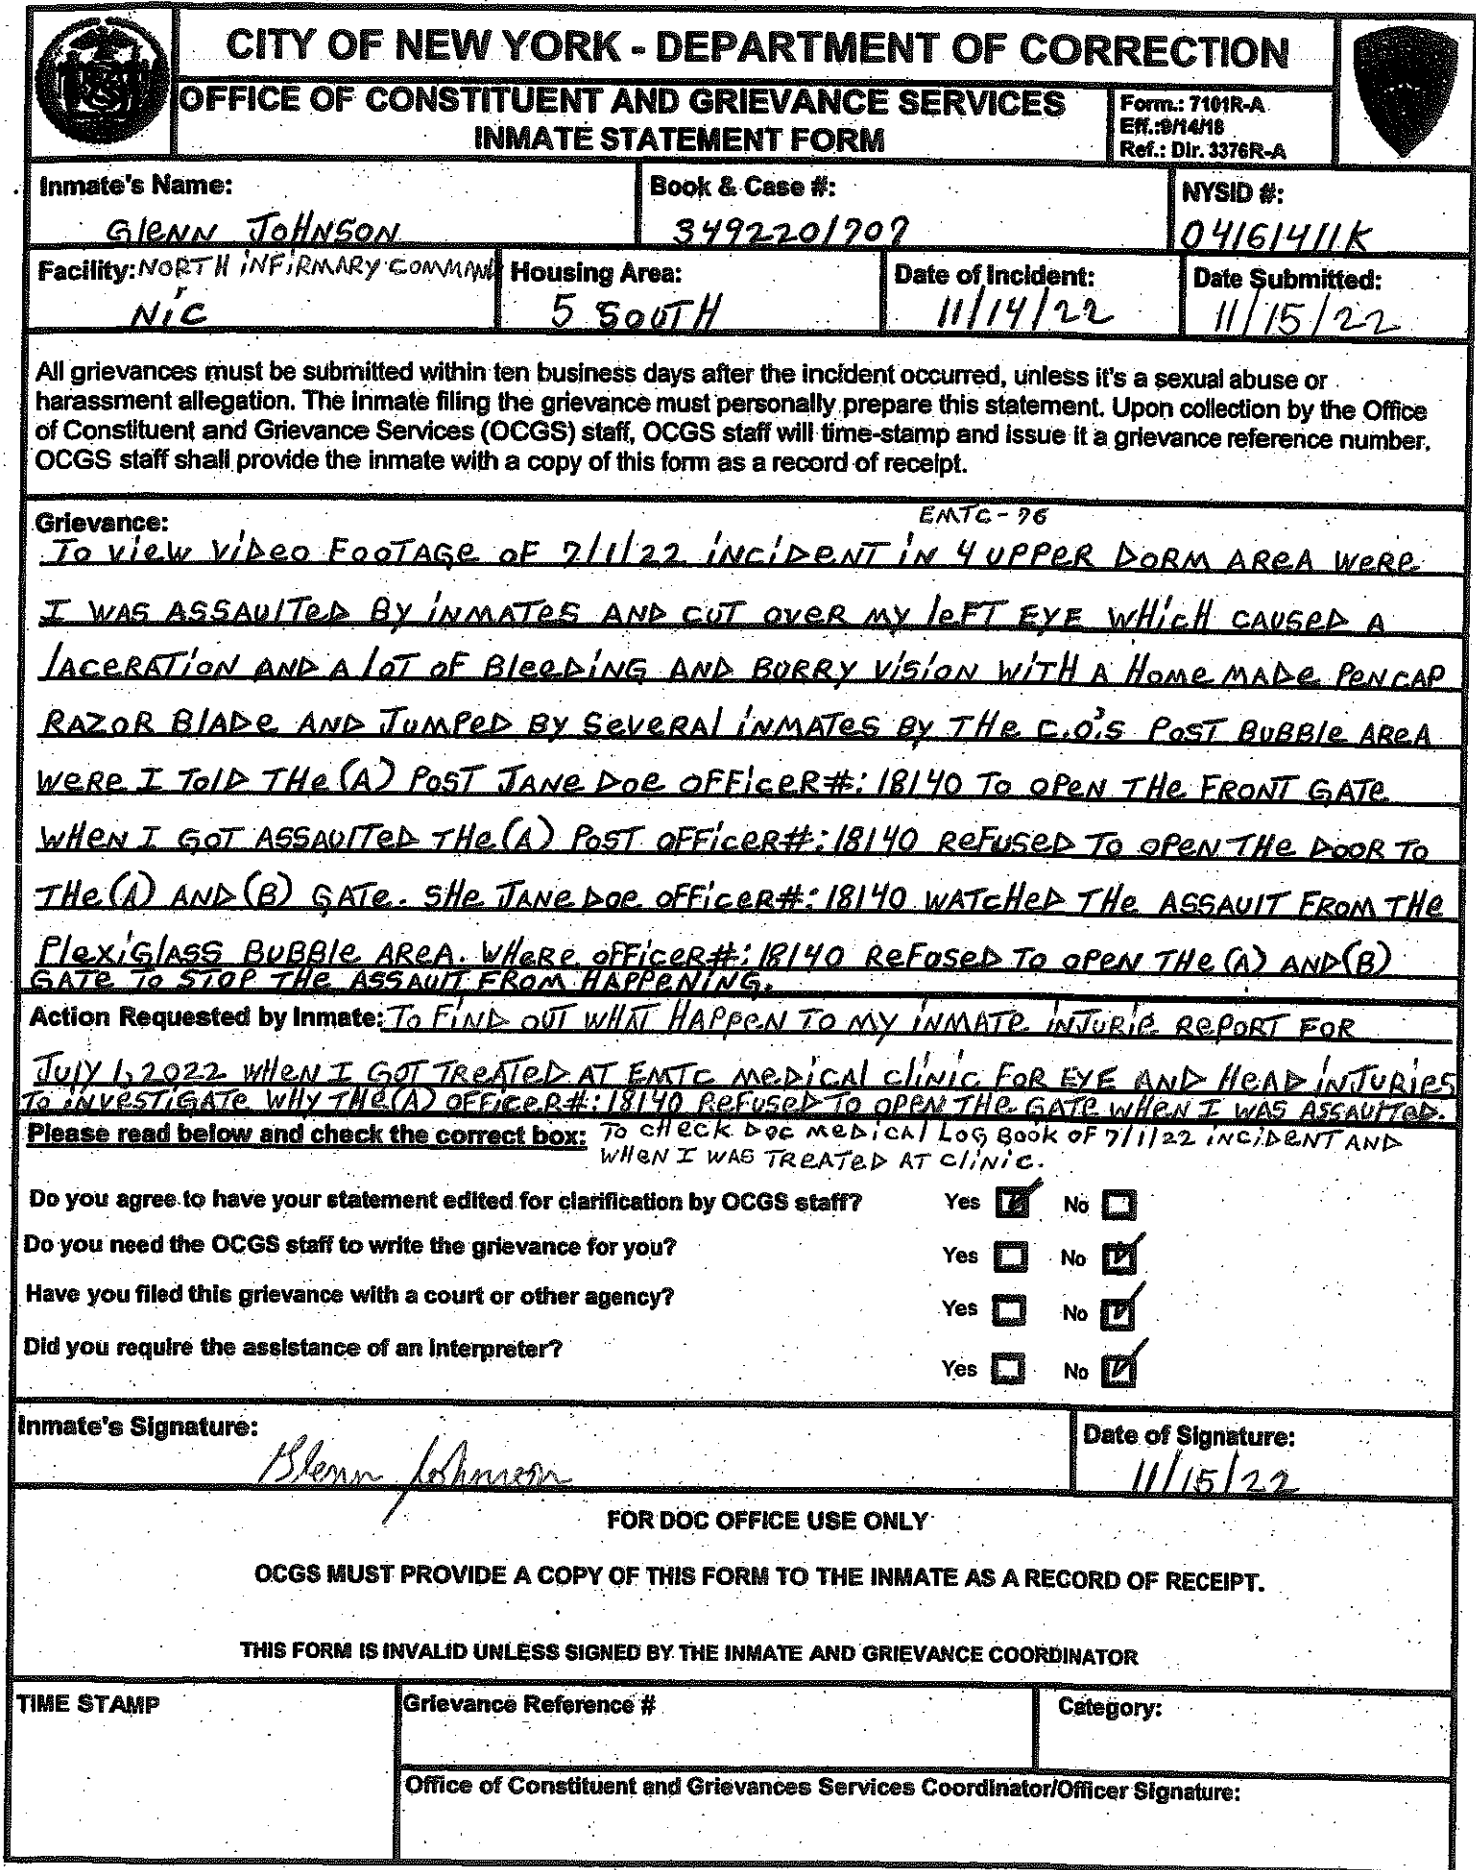 CITY OF NEW YORK - DEPARTMENT OF CORRECTION
OFFICE OF CONSTITUENT AND GRIEVANCE SERVICES
INMATE STATEMENT FORM
Form.: 7101R-A
Eff.:9/14/18
Ref.: Dir. 3376R-A
Inmate's Name:
GlENN JOHNSON
Book & Case #:
3492201707
NYSID #:
04161411K
Facility: NORTH iNFiRMARY COMMAND
NiC
Housing Area:
5 SOUTH
Date of Incident:
11/14/22
Date Submitted:
11/15/22
All grievances must be submitted within ten business days after the incident occurred, unless it's a sexual abuse or
harassment allegation. The inmate filing the grievance must personally prepare this statement. Upon collection by the Office
of Constituent and Grievance Services (OCGS) staff, OCGS staff will time-stamp and issue it a grievance reference number.
OCGS staff shall provide the inmate with a copy of this form as a record of receipt.
Grievance:
EMTC-76
To View Video FOOTAGE OF 7/1/22 iNCiDENT iN 4 UPPER DORM AREA WERE
I WAS ASSAUlTED BY iNMATES AND CUT OVER MY leFT EYE WHicH CAUSED A
lACERATiON AND A lOT OF BleeDiNG AND BURRY ViSiON WiTH A HOME MADE PEN CAP
RAZOR BlADE AND JUMPED BY SEVERAl iNMATES BY THE C.O.'S POST BUBBle AREA
WERE I TOlD THE (A) POST JANE DOE OFFiCER#: 18140 TO OPEN THE FRONT GATE
WHEN I GOT ASSAUlTED THE (A) POST OFFiCER#: 18140 REFUSED TO OPEN THE DOOR TO
THE (A) AND (B) GATE. SHE JANE DOE OFFiCER#: 18140 WATCHED THE ASSAUlT FROM THE
PlexiGlASS BUBBle AREA. WHERE OFFiCER#: 18140 REFUSED TO OPEN THE (A) AND (B)
GATE TO STOP THE ASSAUlT FROM HAPPENING.
Action Requested by Inmate: TO FIND OUT WHAT HAPPEN TO MY iNMATE iNJURiE REPORT FOR
JUlY 1, 2022 WHEN I GOT TREATED AT EMTC MEDiCAl CliNiC FOR EYE AND HEAD iNJURiES
TO iNVESTiGATE WHY THE (A) OFFiCER#: 18140 REFUSED TO OPEN THE GATE WHEN I WAS ASSAUlTED.
Please read below and check the correct box: TO CHECK DOC MEDiCAl LOG BOOK OF 7/1/22 iNCiDENT AND
WHEN I WAS TREATED AT CliNiC.
Do you agree to have your statement edited for clarification by OCGS staff? Yes ☑ No ☐
Do you need the OCGS staff to write the grievance for you? Yes ☐ No ☑
Have you filed this grievance with a court or other agency? Yes ☐ No ☑
Did you require the assistance of an interpreter? Yes ☐ No ☑
Inmate's Signature:
Glenn Johnson
Date of Signature:
11/15/22
FOR DOC OFFICE USE ONLY
OCGS MUST PROVIDE A COPY OF THIS FORM TO THE INMATE AS A RECORD OF RECEIPT.
THIS FORM IS INVALID UNLESS SIGNED BY THE INMATE AND GRIEVANCE COORDINATOR
TIME STAMP
Grievance Reference #
Category:
Office of Constituent and Grievances Services Coordinator/Officer Signature: